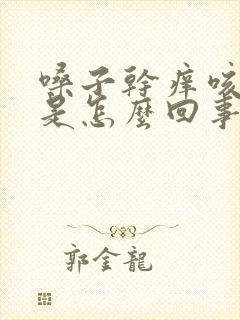 嗓子幹痒咳
是怎麼回事
郭金龍